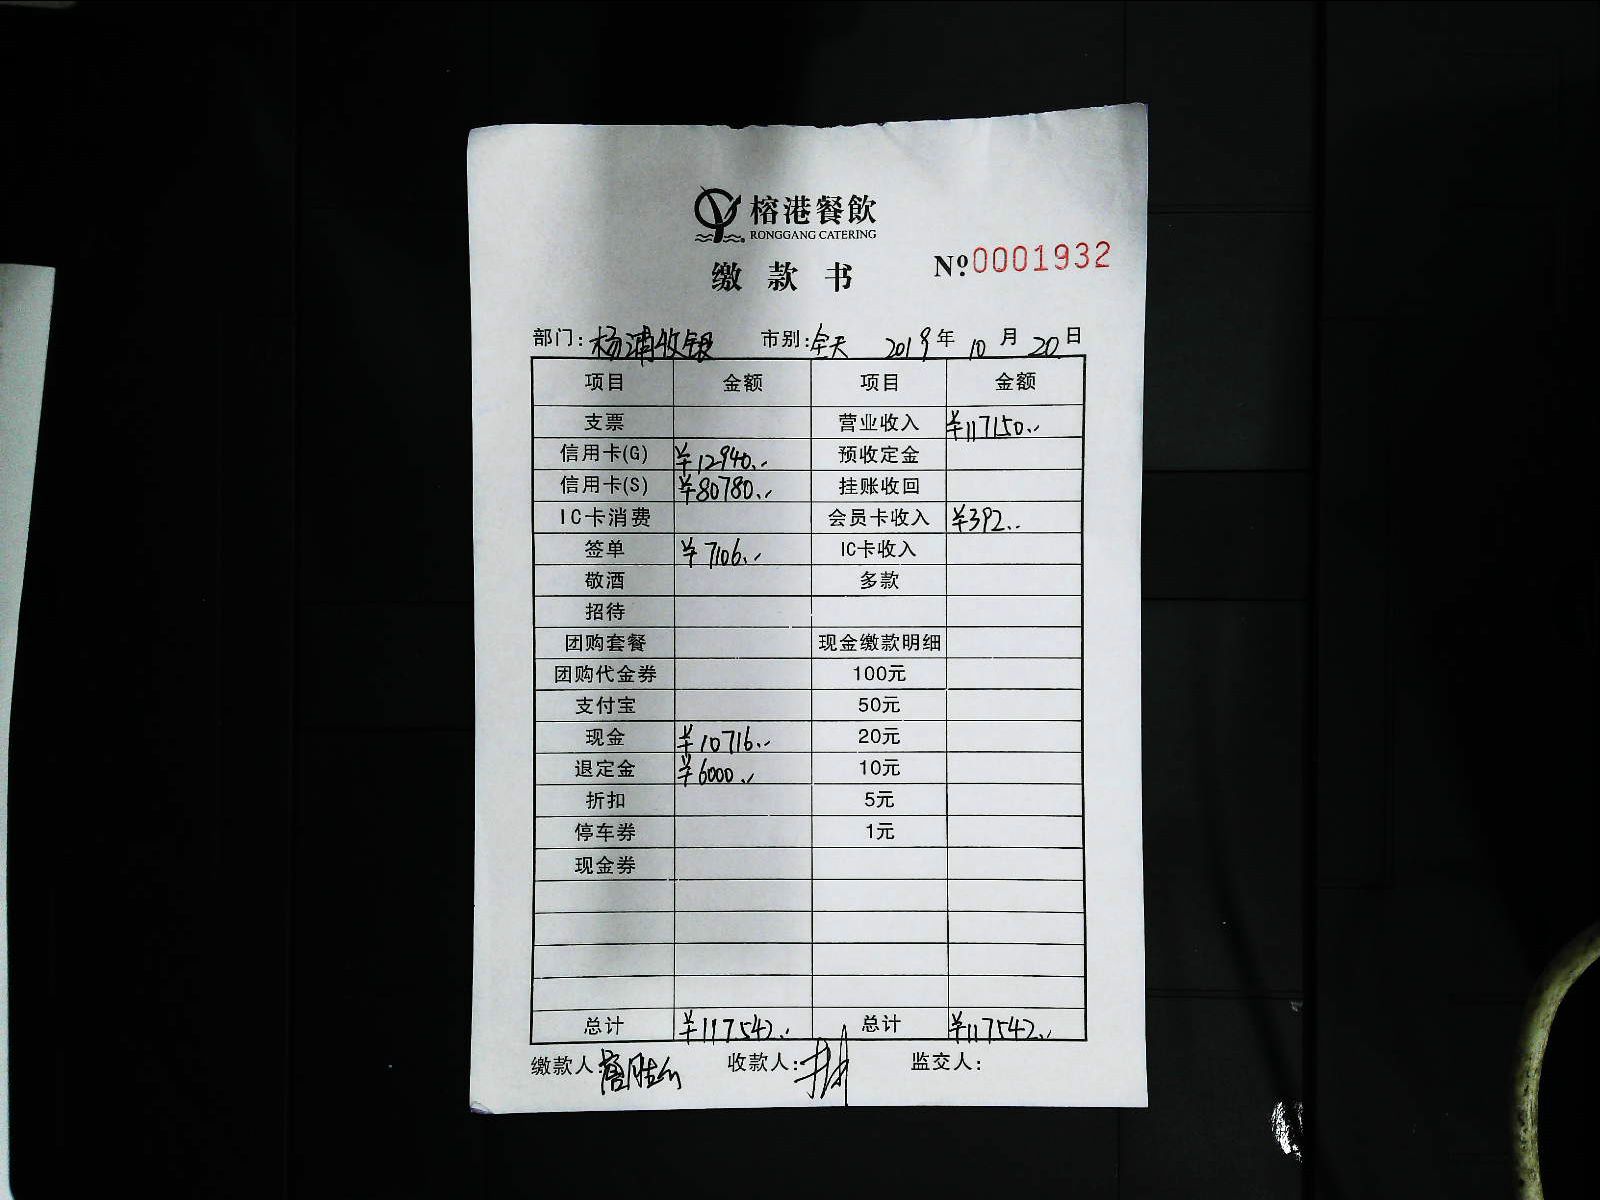 榕港餐飲
RONGGANG CATERING
缴款书 №0001932
部门: 杨浦收银 市别: 全天 2019年10月20日
项目 金额 项目 金额
支票 营业收入 ¥117150.-
信用卡(G) ¥12940.- 预收定金
信用卡(S) ¥80780.- 挂账收回
IC卡消费 会员卡收入 ¥392.-
签单 ¥7106.- IC卡收入
敬酒 多款
招待
团购套餐 现金缴款明细
团购代金券 100元
支付宝 50元
现金 ¥10716.- 20元
退定金 ¥6000.- 10元
折扣 5元
停车券 1元
现金券
总计 ¥117542.- 总计 ¥117542.-
缴款人: 收款人: 监交人: